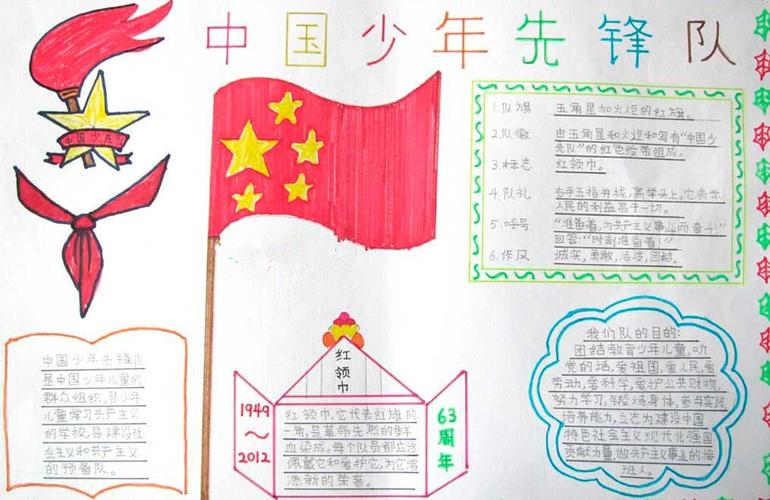 中国少年先锋队
中国少先队
1.队旗 五角星加火炬的红旗。
2.队徽 由五角星和火炬和写有“中国少
先队”的红色绶带组成。
3.标志 红领巾。
4.队礼 右手五指并拢,高举头上。它表示
人民的利益高于一切。
5.呼号 “准备着,为共产主义事业而奋斗!”
回答:“时刻准备着!”
6.作风 诚实,勇敢,活泼,团结。
中国少年先锋队
是中国少年儿童的
群众组织,是少年
儿童学习共产主义
的学校,是建设社
会主义和共产主义
的预备队。
红领巾
1949
~
2012
红领巾,它代表红旗的
一角,是革命先烈的鲜
血染成。每个队员都应该
佩戴它和爱护它,为它增
添新的荣誉。
63周年
我们队的目的:
团结教育少年儿童,听
党的话,爱祖国,爱人民,爱
劳动,爱科学,爱护公共财物,
努力学习,锻炼身体,参与实践,
培养能力,立志为建设中国
特色社会主义现代化强国
贡献力量,做共产主义事业的接
班人。